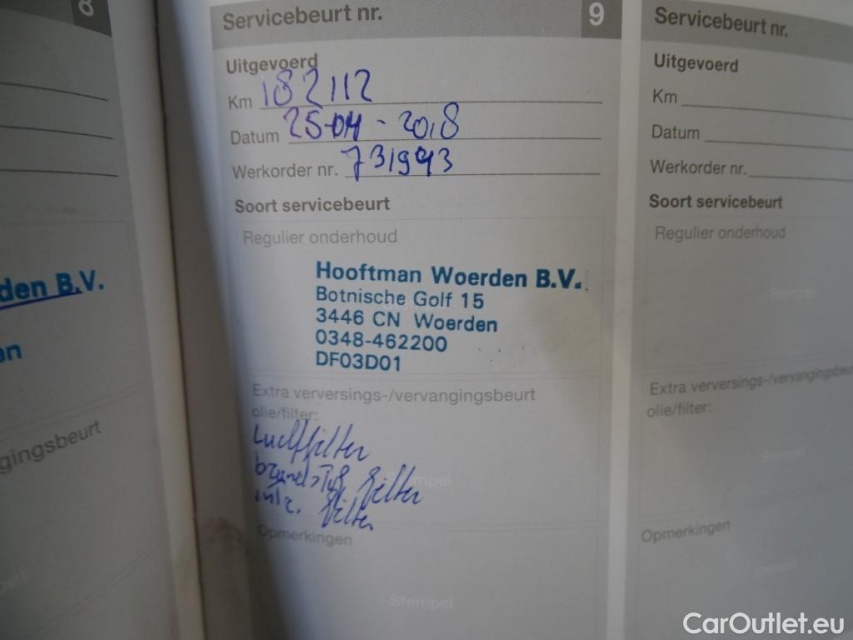 8
den B.V.
en
gingsbeurt
Servicebeurt nr. 9
Uitgevoerd
Km 182112
Datum 25-04-2018
Werkorder nr. 731993
Soort servicebeurt
Regulier onderhoud
Hooftman Woerden B.V.
Botnische Golf 15
3446 CN Woerden
0348-462200
DF03D01
Extra verversings-/vervangingsbeurt
olie/filter:
Luchtfilter
brandstof filter
filter
Stempel
Opmerkingen
Stempel
Servicebeurt nr.
Uitgevoerd
Km
Datum
Werkorder nr.
Soort servicebeurt
Regulier onderhoud
Stempel
Extra verversings-/vervangingsbeu
olie/filter:
Opmerkingen
CarOutlet.eu